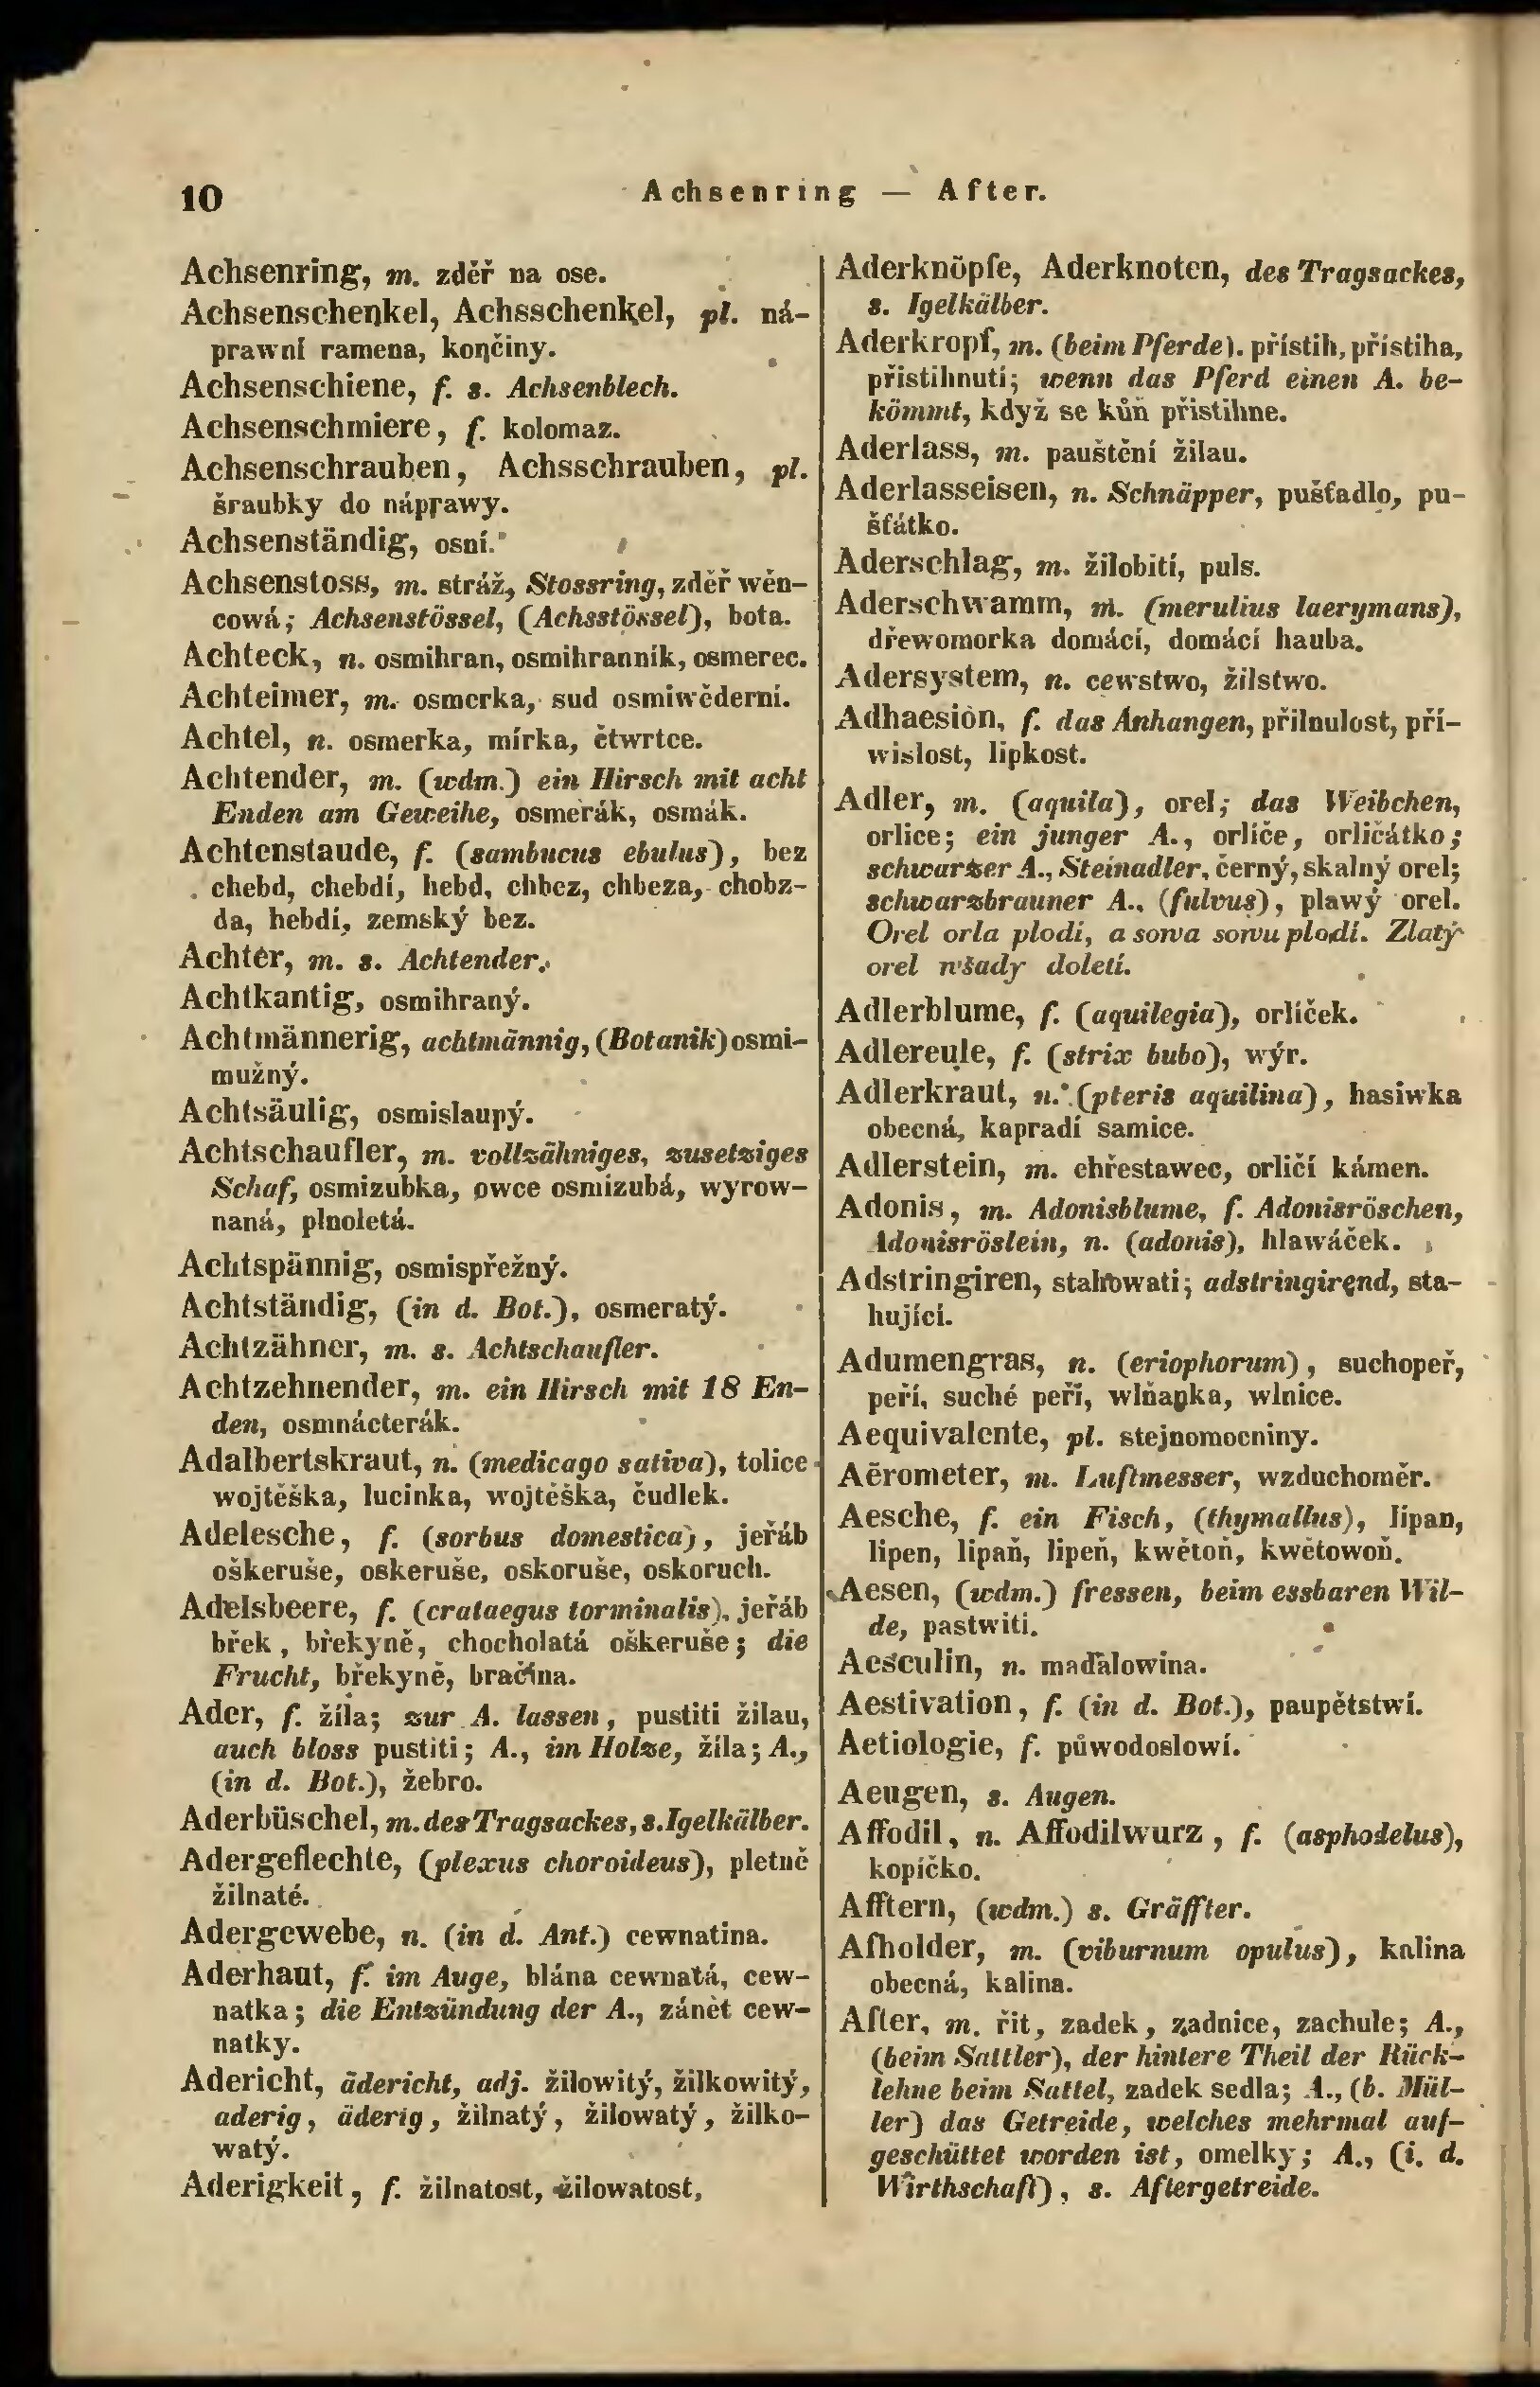 10
Achsenring — After.
Achsenring, m. zděř na ose.
Achsenschenkel, Achsschenkel, pl. ná-
prawní ramena, končiny.
Achsenschiene, f. s. Achsenblech.
Achsenschmiere, f. kolomaz.
Achsenschrauben, Achsschrauben, pl.
šraubky do náprawy.
Achsenständig, osní.
Achsenstoss, m. stráž, Stossring, zděř wěn-
cowá; Achsenstössel, (Achsstössel), bota.
Achteck, n. osmihran, osmihranník, osmerec.
Achteimer, m. osmerka, sud osmiwěderní.
Achtel, n. osmerka, mírka, čtwrtce.
Achtender, m. (wdm.) ein Hirsch mit acht
Enden am Geweihe, osmerák, osmák.
Achtenstaude, f. (sambucus ebulus), bez
chebd, chebdí, hebd, chbez, chbeza, chobz-
da, hebdí, zemský bez.
Achter, m. s. Achtender.
Achtkantig, osmihraný.
Achtmännerig, achtmännig, (Botanik) osmi-
mužný.
Achtsäulig, osmislaupý.
Achtschaufler, m. vollzähniges, zusetziges
Schaf, osmizubka, owce osmizubá, wyrow-
naná, plnoletá.
Achtspännig, osmispřežný.
Achtständig, (in d. Bot.), osmeratý.
Achtzähner, m. s. Achtschaufler.
Achtzehnender, m. ein Hirsch mit 18 En-
den, osmnácterák.
Adalbertskraut, n. (medicago sativa), tolice
wojtěška, lucinka, wojtěška, čudlek.
Adelesche, f. (sorbus domestica), jeřáb
oškeruše, oskeruše, oskoruše, oskoruch.
Adelsbeere, f. (crataegus torminalis), jeřáb
břek, břekyně, chocholatá oškeruše; die
Frucht, břekyně, bračina.
Ader, f. žíla; zur A. lassen, pustiti žilau,
auch bloss pustiti; A., im Holze, žíla; A.,
(in d. Bot.), žebro.
Aderbüschel, m. des Tragsackes, s. Igelkälber.
Adergeflechte, (plexus choroideus), pletně
žilnaté.
Adergewebe, n. (in d. Ant.) cewnatina.
Aderhaut, f. im Auge, blána cewnatá, cew-
natka; die Entzündung der A., zánět cew-
natky.
Adericht, ädericht, adj. žilowitý, žilkowitý,
aderig, äderig, žilnatý, žilowatý, žilko-
watý.
Aderigkeit, f. žilnatost, žilowatost,
Aderknöpfe, Aderknoten, des Tragsackes,
s. Igelkälber.
Aderkropf, m. (beim Pferde). přístih, přístiha,
přistihnutí; wenn das Pferd einen A. be-
kömmt, když se kůň přistihne.
Aderlass, m. pauštění žilau.
Aderlasseisen, n. Schnäpper, pušťadlo, pu-
šťátko.
Aderschlag, m. žilobití, puls.
Aderschwamm, m. (merulius lacrymans),
dřewomorka domácí, domácí hauba.
Adersystem, n. cewstwo, žilstwo.
Adhaesion, f. das Anhangen, přilnulost, pří-
wislost, lipkost.
Adler, m. (aquila), orel; das Weibchen,
orlice; ein junger A., orlíče, orličátko;
schwarzer A., Steinadler, černý, skalný orel;
schwarzbrauner A., (fulvus), plawý orel.
Orel orla plodí, a sowa sowu plodí. Zlatý
orel wšady doletí.
Adlerblume, f. (aquilegia), orlíček.
Adlereule, f. (strix bubo), wýr.
Adlerkraut, n. (pteris aquilina), hasiwka
obecná, kapradí samice.
Adlerstein, m. chřestawec, orličí kámen.
Adonis, m. Adonisblume, f. Adonisröschen,
Adonisröslein, n. (adonis), hlawáček.
Adstringiren, stahowati; adstringirend, sta-
hující.
Adumengras, n. (eriophorum), suchopeř,
peří, suché peří, wlňanka, wlnice.
Aequivalente, pl. stejnomocniny.
Aërometer, m. Luftmesser, wzduchoměr.
Aesche, f. ein Fisch, (thymallus), lípan,
lipen, lipaň, lipeň, kwětoň, kwětowoň.
Aesen, (wdm.) fressen, beim essbaren Wil-
de, pastwiti.
Aesculin, n. maďalowina.
Aestivation, f. (in d. Bot.), paupětstwí.
Aetiologie, f. půwodoslowí.
Aeugen, s. Augen.
Affodil, n. Affodilwurz, f. (asphodelus),
kopíčko.
Afftern, (wdm.) s. Gräffter.
Afholder, m. (viburnum opulus), kalina
obecná, kalina.
After, m. řit, zadek, zadnice, zachule; A.,
(beim Sattler), der hintere Theil der Rück-
lehne beim Sattel, zadek sedla; A., (b. Mül-
ler) das Getreide, welches mehrmal auf-
geschüttet worden ist, omelky; A., (i. d.
Wirthschaft), s. Aftergetreide.